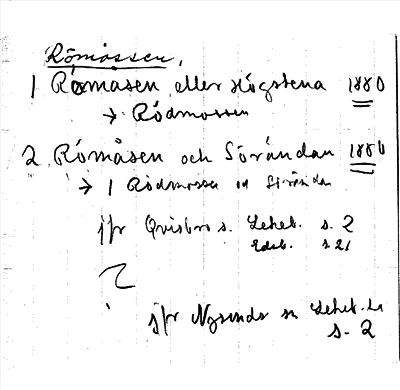 Römossen,
1 Römåsen eller Högstena 1880
→ Rödmossen
2 Römåsen och Sörändan 1886
→ 1 Rödmossen o Sörända
jfr Qvisbro s. Lekeb. s. 2
Edsb. s 21
jfr Nysunds sn Lekeb. hd
s. 2